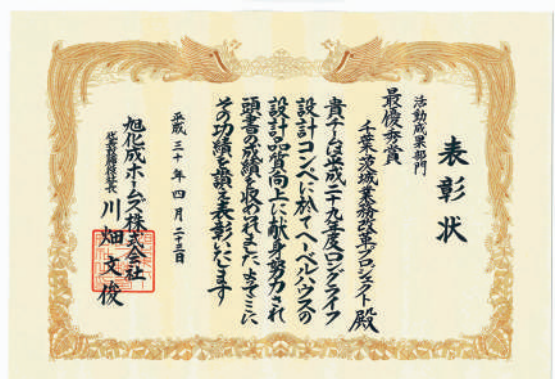 表彰状
活動成果部門
最優秀賞
千葉茨城業務改革プロジェクト殿
貴チームは平成二十九年度ロングライフ
設計コンペに於てヘーベルハウスの
設計品質向上に献身努力され
頭書の成績を収められました よってここに
その功績を讃え表彰いたします
平成三十年四月二十三日
旭化成ホームズ株式会社
代表取締役社長 川畑文俊